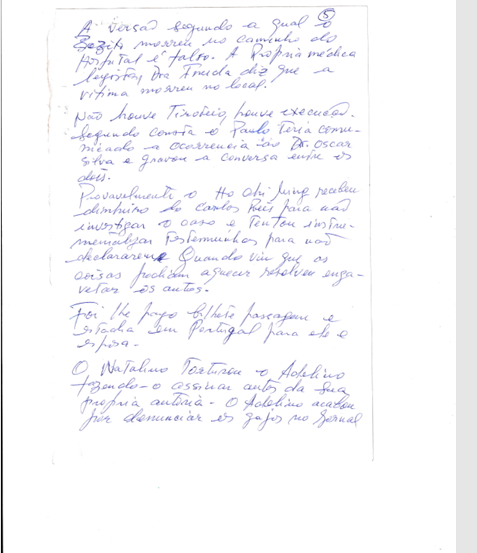 5
A versão segundo a qual o
Zezito morreu no caminho do
Hospital é falso. A Própria médica
legista, Dra diz que a
vítima morreu no local.
Não houve Tiroteio, houve execução.
Segundo consta o Paulo Teria comu-
nicado a ocorrencia ao Dr. Oscar
Silva e gravou a conversa entre os
dois.
Provavelmente o Ho Chi Ming recebeu
dinheiro do Carlos Reis para não
investigar o caso e Tentou instru-
mentalizar Testemunhas para não
declararem. Quando viu que as
coisas podiam aquecer resolveu enga-
vetar os autos.
Foi lhe pago bilhete passagem e
estadia em Portugal para ele e
esposa.
O Natalino Torturou o Adelino
fazendo-o assinar autos da sua
própria autoria - O Adelino acabou
por denunciar os gajos no Jornal